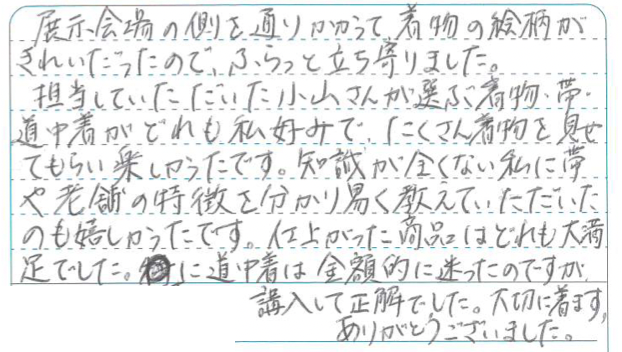 展示会場の側を通りかかって、着物の絵柄が
きれいだったので、ふらっと立ち寄りました。
担当していただいた小山さんが選ぶ着物・帯・
道中着がどれも私好みで、たくさん着物を見せ
てもらい楽しかったです。知識が全くない私に帯
や老舗の特徴を分かり易く教えていただいた
のも嬉しかったです。仕上がった商品はどれも大満
足でした。に道中着は金額的に迷ったのですが、
講入して正解でした。大切に着ます。
ありがとうございました。